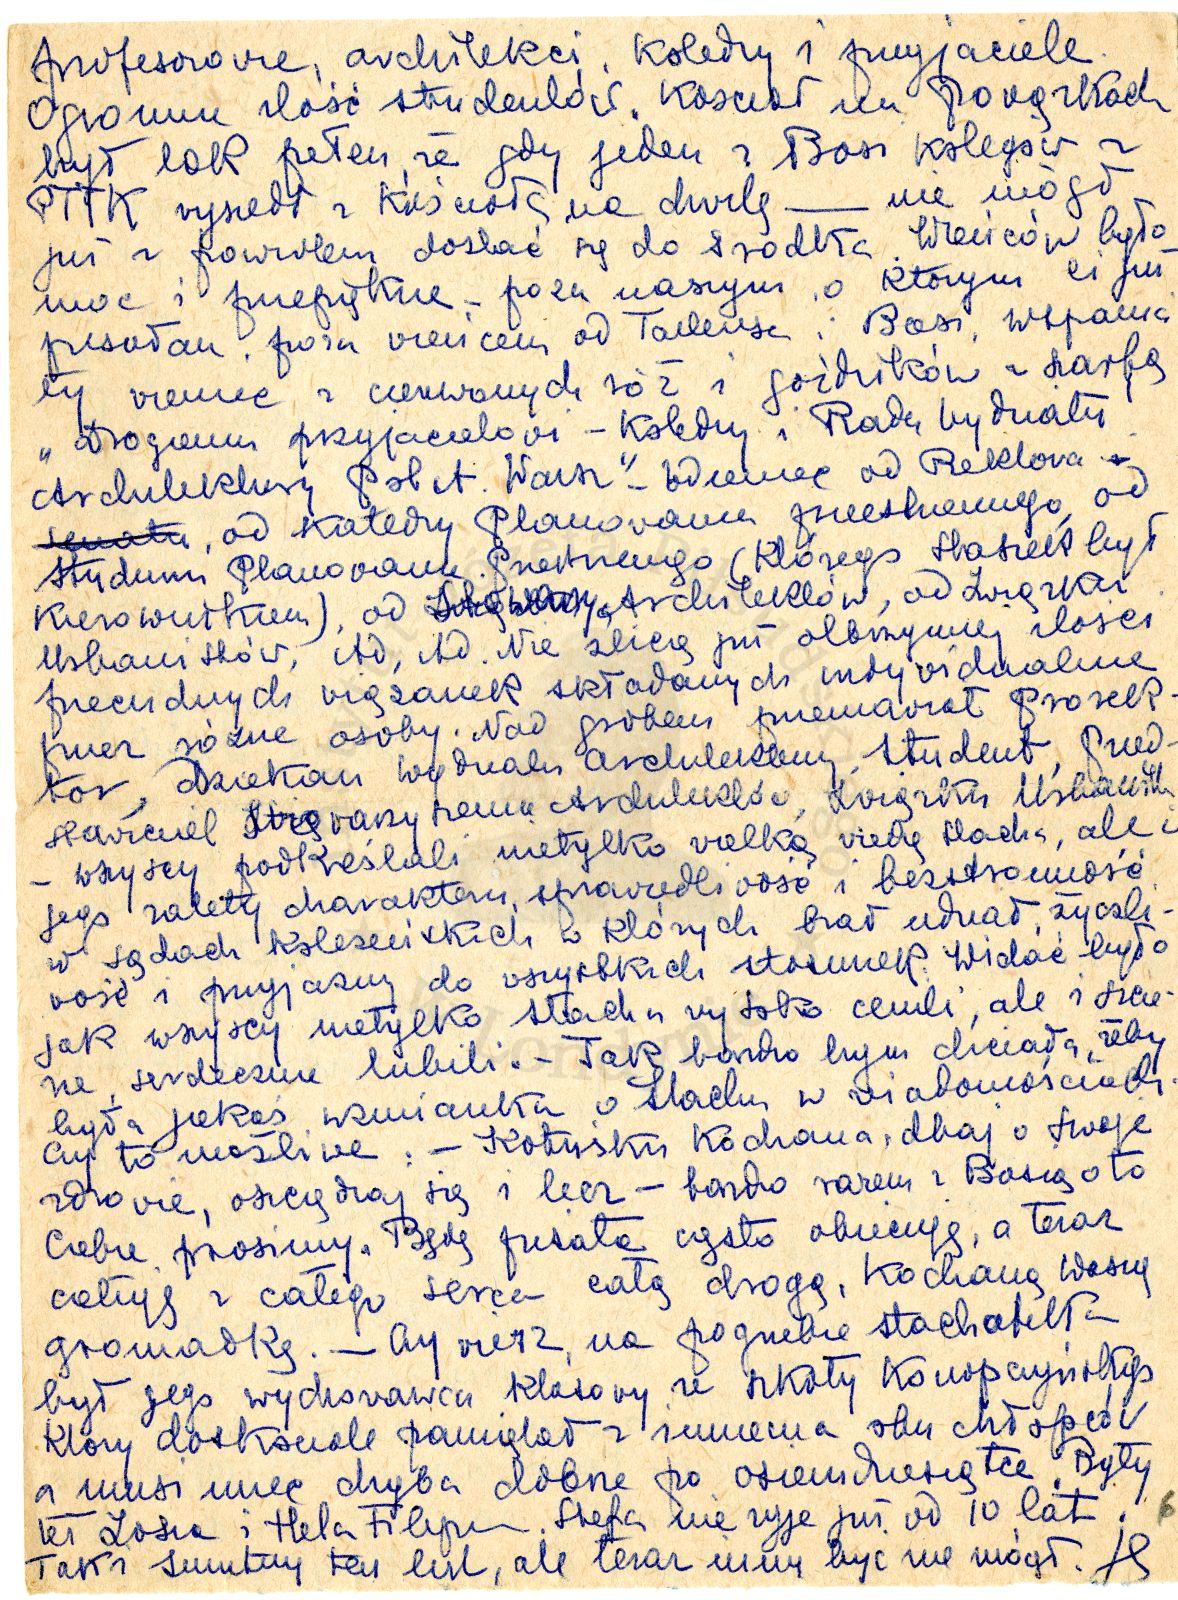 profesorowie, architekci, koledzy i przyjaciele.
Ogromna ilość studentów. Kościół na Powązkach
był tak pełen, że gdy jeden z Basi kolegów z
PTTK wyszedł z kościoła na chwilę — nie mógł
już z powrotem dostać się do środka. Wieńców było
moc i przepiękne – poza naszym, o którym ci już
pisałam, poza wieńcem od Tadeusza i Basi, wspania
ły wieniec z czerwonych róż i goździków z szarfą
„Drogiemu przyjacielowi – Koledzy i Rada Wydziału
Architektury Polit. Warsz." – Wieniec od Rektora i
senatu, od Katedry Planowania przestrzennego, od
Studium Planowania Przestrznego (którego Stasiek był
kierownikiem), od Architektów, od Związku
Urbanistów, itd, itd. Nie zliczę już olbrzymiej ilości
przecudnych wiązanek składanych indywidualnie
przez różne osoby. Nad grobem przemawiał Prorek-
tor, Dziekan Wydziału Architektury, student, przed-
stawiciel Stowarzyszenia Architektów, Związku Urbanistów
– wszyscy podkreślali nietylko wielką wiedzę Stacha, ale i
jego zalety charakteru, sprawiedliwość i bezstronność
w sądach koleżeńskich w których brał udział, życzli-
wość i przyjazny do wszystkich stosunek. Widać było
jak wszyscy nietylko Stacha wysoko cenili, ale i szcze-
rze, serdecznie lubili. – Tak bardzo bym chciała, żeby
była jakaś wzmianka o Stachu w wiadomościach.
Czy to możliwe. – Kotuśku kochana, dbaj o swoje
zdrowie, oszczędzaj się i lecz – bardzo razem z Basią o to
Ciebie prosimy. Będę pisała często obiecuję, a teraz
całuję z całego serca całą drogą, kochaną Waszą
gromadkę. – Czy wiesz, na pogrzebie Stachatka
był jego wychowawca klasowy ze szkoły Konopczyńskiego
który doskonale pamiętał z imienia obu chłopców
a musi mieć chyba dobrze po osiemdziesiątce. Były
też Zosia i Hela Filipu. Stefa nie żyje już od 10 lat.
Taki smutny ten list, ale teraz inny być nie mógł.
6